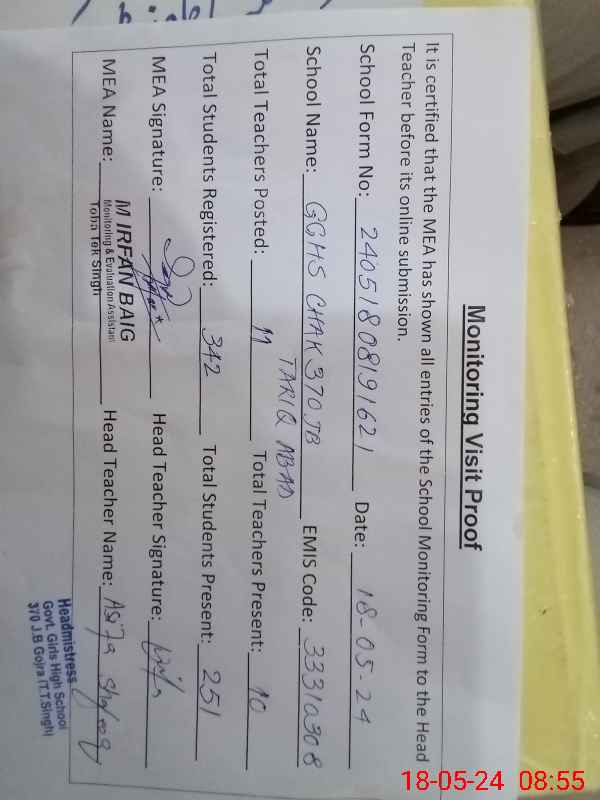 Monitoring Visit Proof
It is certified that the MEA has shown all entries of the School Monitoring Form to the Head
Teacher before its online submission.
School Form No: 24051808191621 Date: 18-05-24
School Name: GGHS CHAK 370 JB EMIS Code: 33310308
TARIQ ABAD
Total Teachers Posted: 11 Total Teachers Present: 10
Total Students Registered: 342 Total Students Present: 251
MEA Signature: Head Teacher Signature:
MEA Name: M IRFAN BAIG Head Teacher Name: Asifa
Monitoring & Evaluation Assistant
Toba Tek Singh
Headmistress
Govt. Girls High School
370 J.B Gojra (T.T.Singh)
18-05-24 08:55